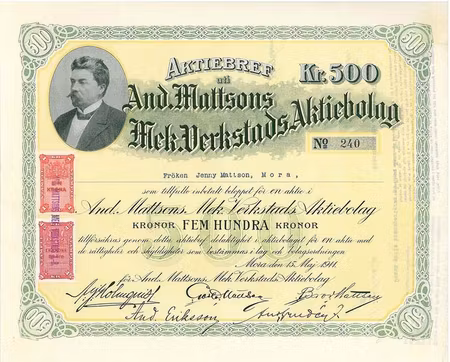 500
500
AKTIEBREF
uti
Kr. 500
And. Mattsons
Mek. Verkstads Aktiebolag
No 240
Fröken Jenny Mattson, Mora,
som tillfullo inbetalt beloppet för en aktie i
And. Mattsons Mek. Verkstads Aktiebolag
KRONOR FEM HUNDRA KRONOR
tillförsäkras genom detta aktiebref delaktighet i aktiebolaget för en aktie med
de rättigheter och skyldigheter som bestämmas i lag och bolagsordningen
Mora den 15 Maj 1911.
För And. Mattsons Mek. Verkstads Aktiebolag:
And. Eriksson
EN
KRONA
500
500